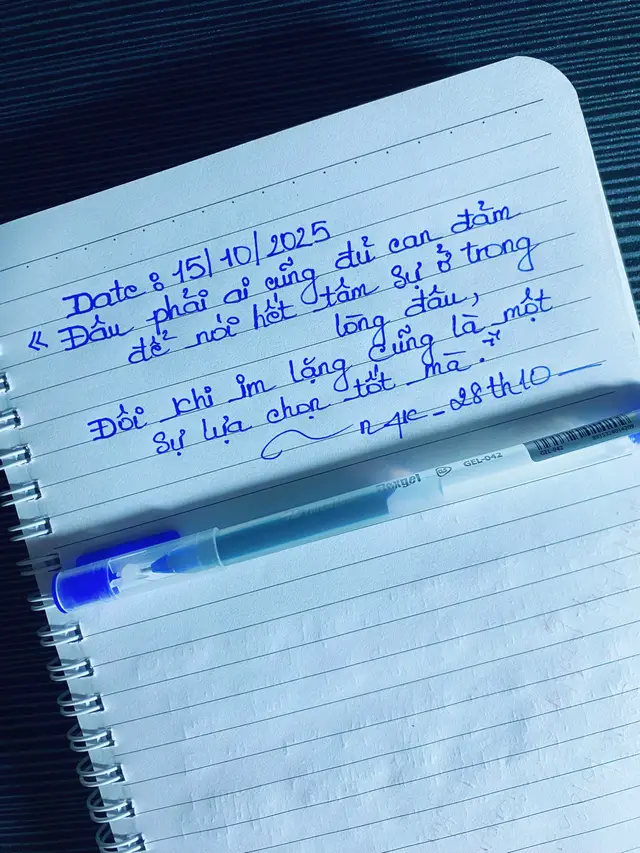 Date : 15/10/2025
« Đâu phải ai cũng đủ can đảm
để nói hết tâm sự ở trong
lòng đâu,
Đôi khi im lặng cũng là một
sự lựa chọn tốt mà."
28th10
GEL-042
GEL-042